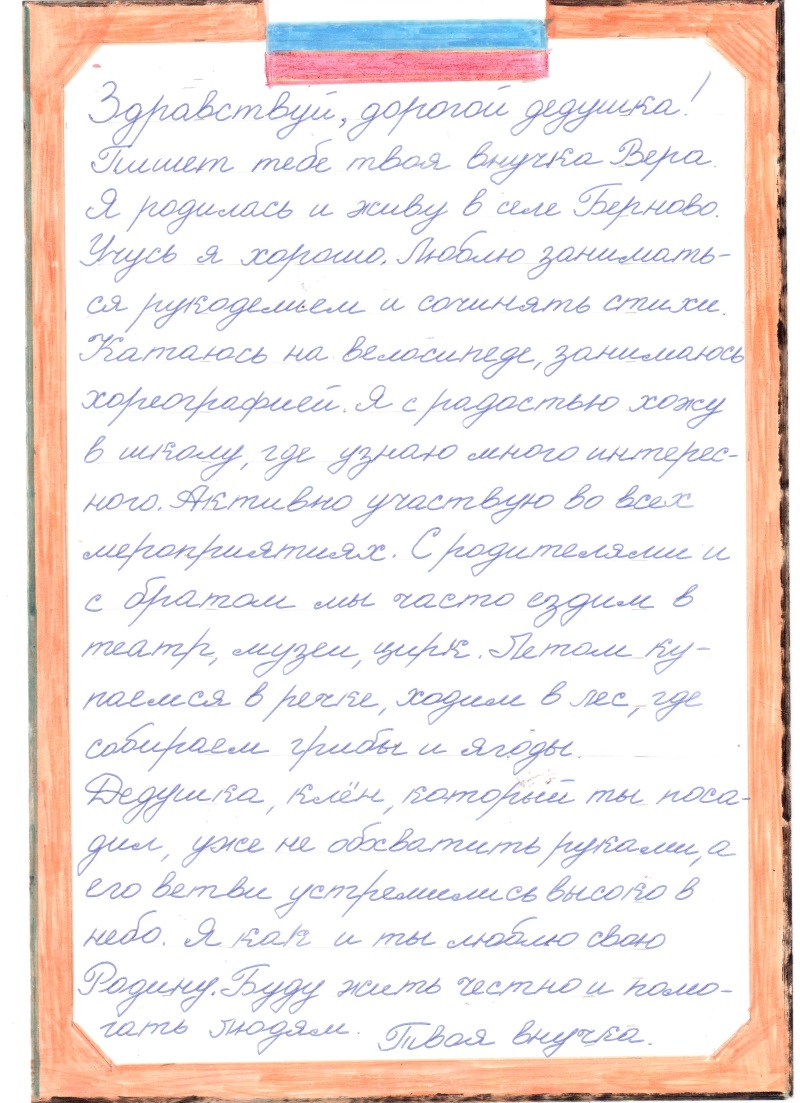 Здравствуй, дорогой дедушка!
Пишет тебе твоя внучка Вера.
Я родилась и живу в селе Берново.
Учусь я хорошо. Люблю занимать-
ся рукоделием и сочинять стихи.
Катаюсь на велосипеде, занимаюсь
хореографией. Я с радостью хожу
в школу, где узнаю много интерес-
ного. Активно участвую во всех
мероприятиях. С родителями и
с братом мы часто ездим в
театр, музеи, цирк. Летом ку-
паемся в речке, ходим в лес, где
собираем грибы и ягоды.
Дедушка, клён, который ты поса-
дил, уже не обхватить руками, а
его ветви устремились высоко в
небо. Я как и ты люблю свою
Родину. Буду жить честно и помо-
гать людям. Твоя внучка.